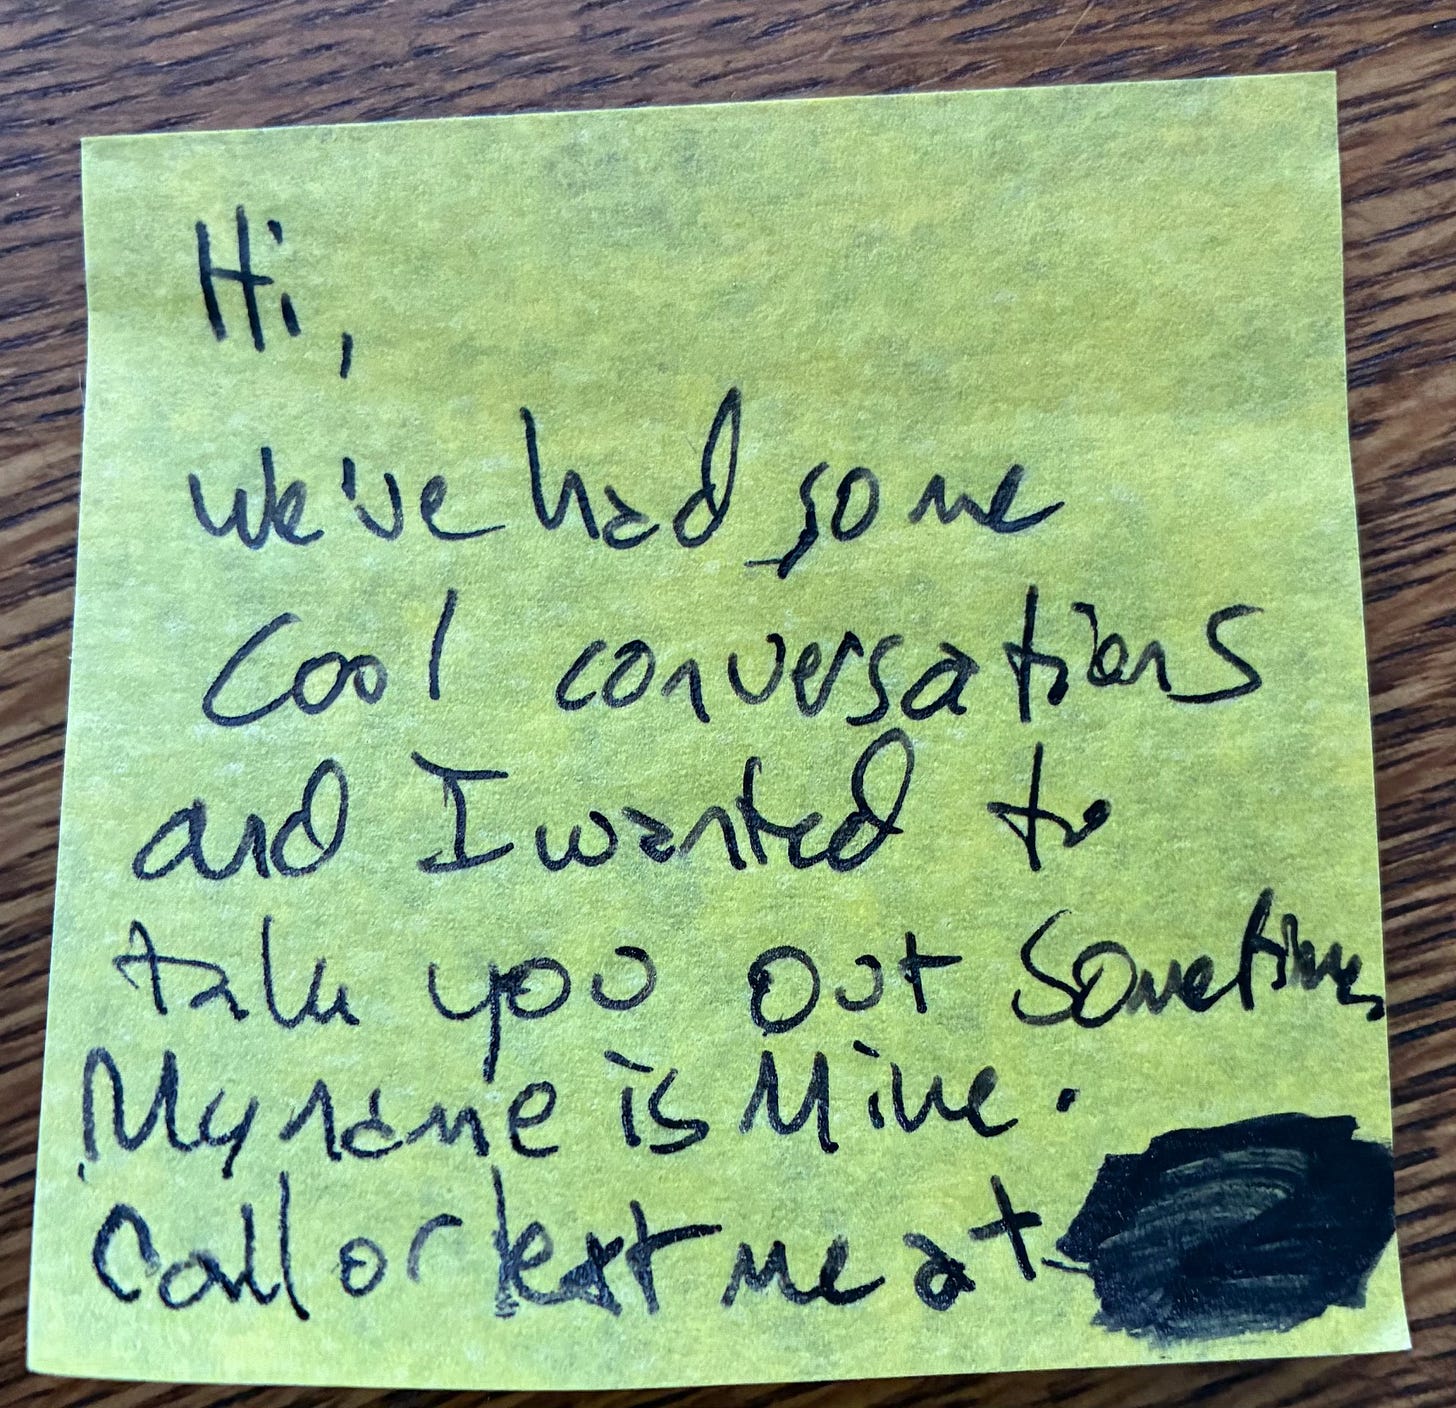 Hi,
we've had some
Cool conversations
and I wanted to
take you out Sometime.
My name is Mike.
Call or text me at